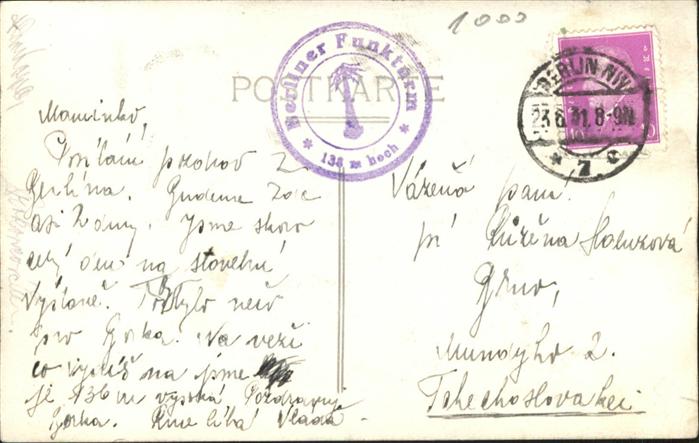 1000
POSTKARTE
Berliner Funkturm
* 138 m hoch *
BERLIN NW
23.6.31.8-9N
* 7 c
Maminko,
Posílám pozdrav z
Berlína. Budeme zde
asi 2 dny. Jsme skoro
celý den na stavební
výstavě. To bylo něco
pro Gorka. Na věži
co vidíš na jsme
je 136 m vysoká Pozdravuj
Gorka. Líbá Vlada
Vážená paní
pí Růžena
Brno,
2.
Tschechoslovakei